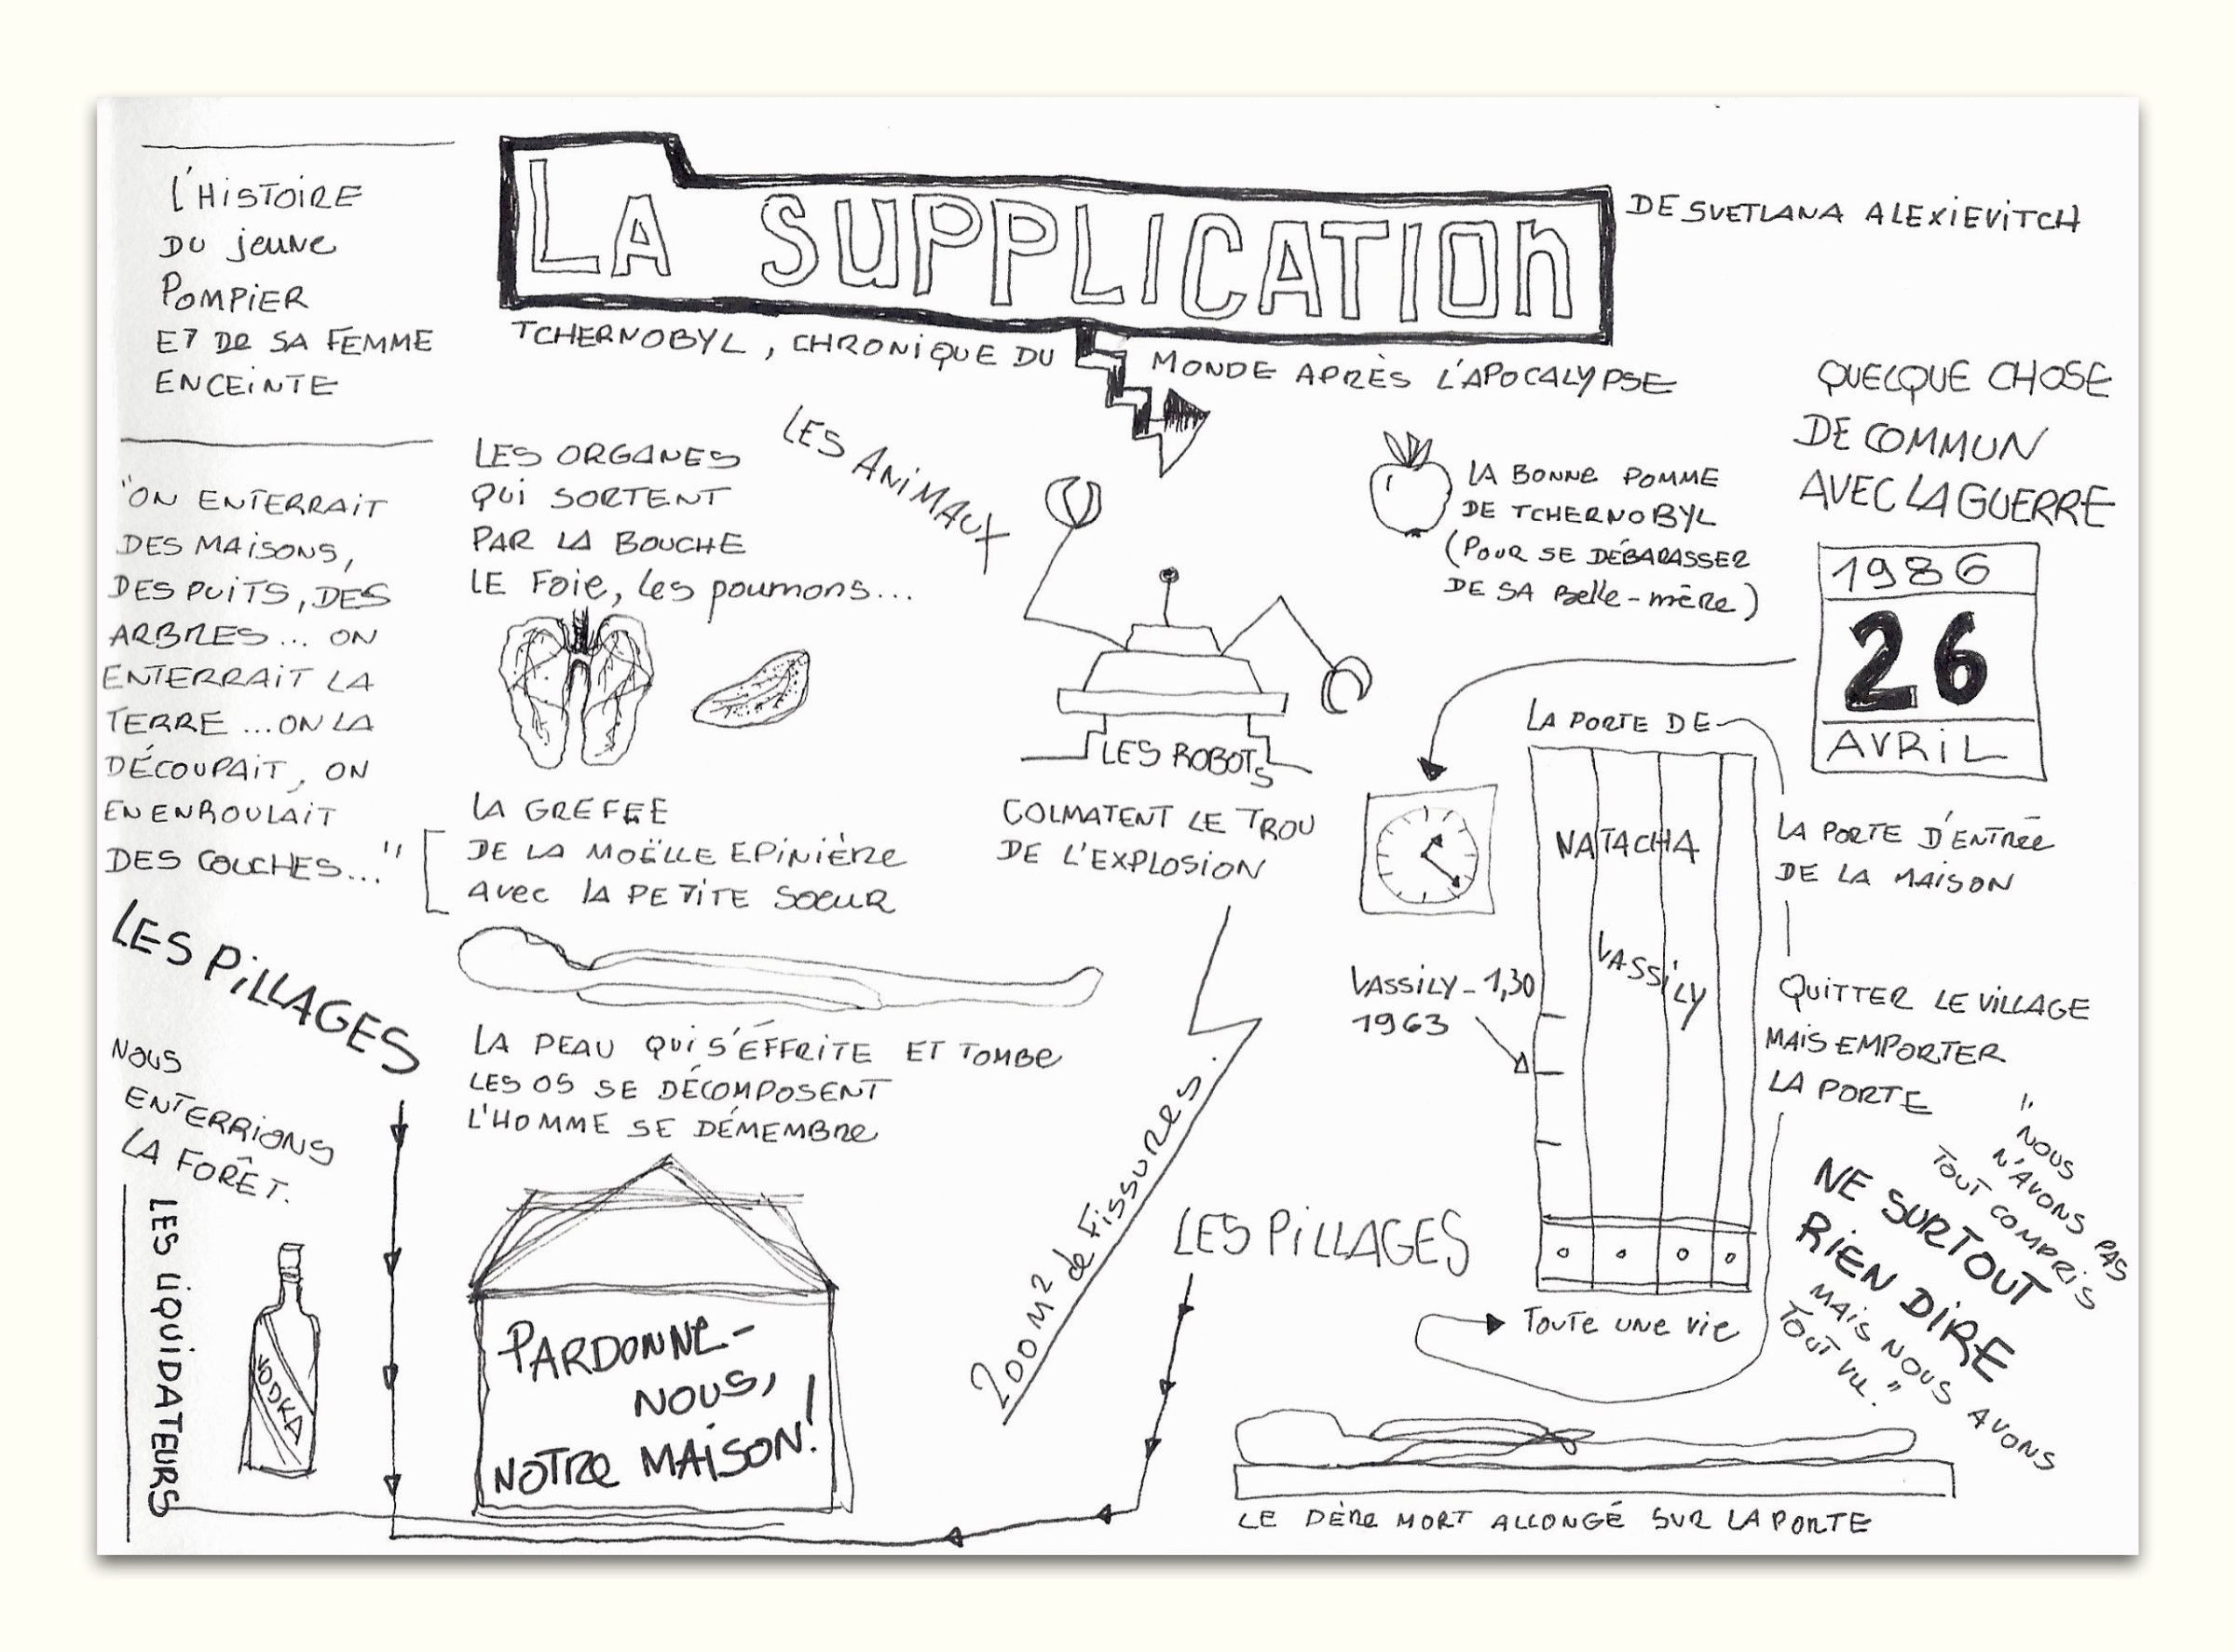 LA SUPPLICATION
DE SVETLANA ALEXIEVITCH
TCHERNOBYL, CHRONIQUE DU MONDE APRÈS L'APOCALYPSE
L'HISTOIRE
DU jeune
POMPIER
ET DE SA FEMME
ENCEINTE
"ON ENTERRAIT
DES MAISONS,
DES PUITS, DES
ARBRES... ON
ENTERRAIT LA
TERRE ...ON LA
DÉCOUPAIT, ON
EN ENROULAIT
DES COUCHES..."
LES PILLAGES
NOUS
ENTERRIONS
LA FORÊT.
LES LIQUIDATEURS
VODKA
LES ORGANES
QUI SORTENT
PAR LA BOUCHE
LE Foie, les poumons...
LA GREFFE
DE LA MOËLLE EPINIÈRE
AVEC LA PETITE SOEUR
LA PEAU QUI S'ÉFFRITE ET TOMBE
LES OS SE DÉCOMPOSENT
L'HOMME SE DÉMEMBRE
PARDONNE-
NOUS,
NOTRE MAISON!
LES ANIMAUX
LES ROBOTS
COLMATENT LE TROU
DE L'EXPLOSION
200 M² de Fissures.
LES PILLAGES
LA BONNE POMME
DE TCHERNOBYL
(POUR SE DÉBARASSER
DE SA Belle-mère)
QUELQUE CHOSE
DE COMMUN
AVEC LA GUERRE
1986
26
AVRIL
LA PORTE DE
NATACHA
VASSILY
VASSILY - 1,30
1963
LA PORTE D'ENTRÉE
DE LA MAISON
QUITTER LE VILLAGE
MAIS EMPORTER
LA PORTE
TOUTE UNE VIE
"NOUS
N'AVONS PAS
TOUT COMPRIS
NE SURTOUT
RIEN DIRE
MAIS NOUS AVONS
TOUT VU."
LE DÈRE MORT ALLONGÉ SUR LA PORTE